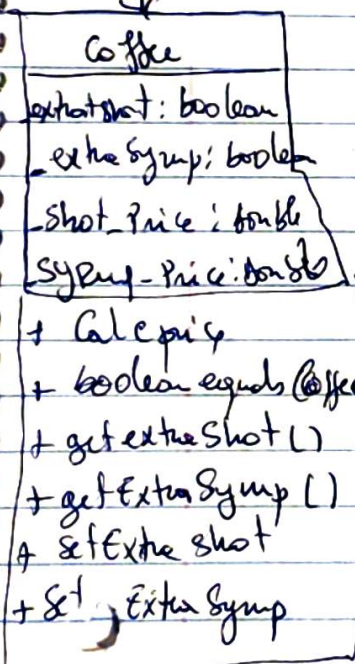 Coffee
_extrashot: boolean
_extra Syrup: boolean
_Shot_Price: double
_Syrup_Price: double
+ Calcprice
+ boolean equals (Coffee
+ getextraShot()
+ getExtraSyrup()
+ setExtra shot
+ Set, Extra Syrup